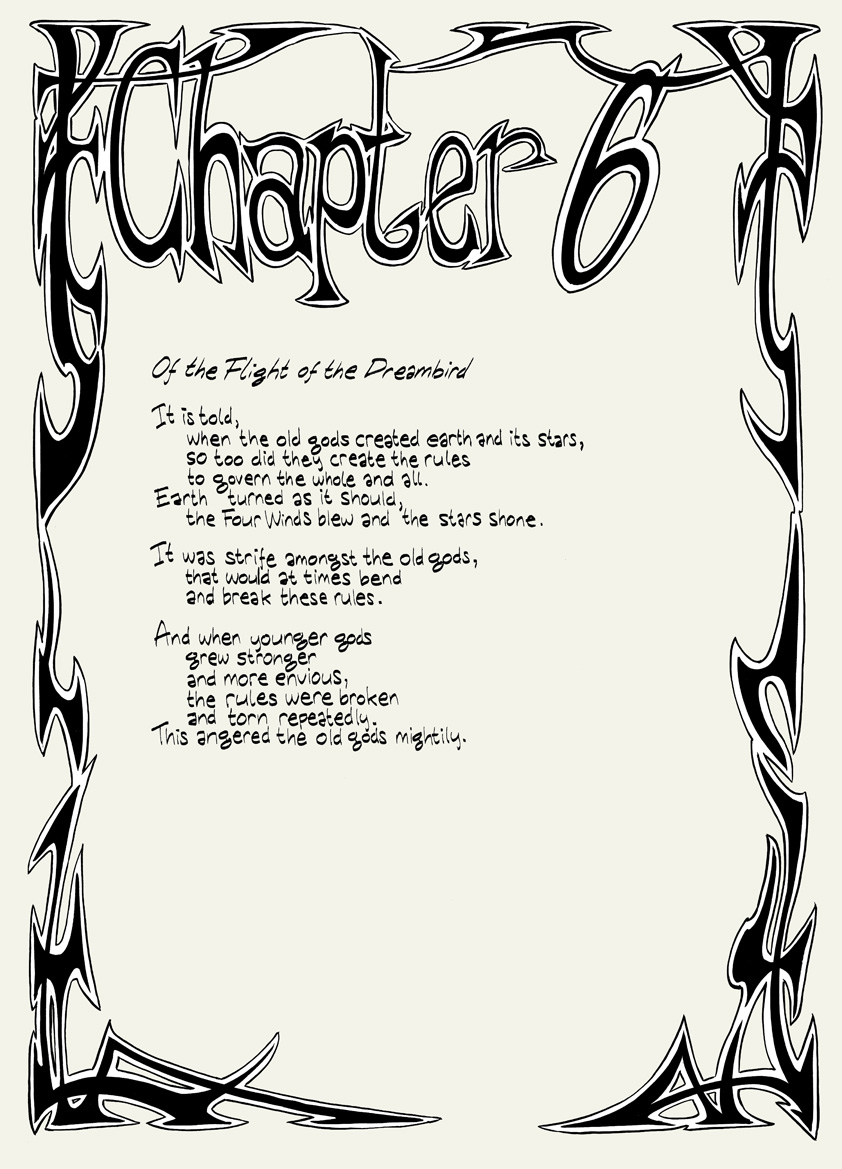 Chapter 6
Of the Flight of the Dreambird
It is told,
when the old gods created earth and its stars,
so too did they create the rules
to govern the whole and all.
Earth turned as it should,
the Four Winds blew and the stars shone.
It was strife amongst the old gods,
that would at times bend
and break these rules.
And when younger gods
grew stronger
and more envious,
the rules were broken
and torn repeatedly.
This angered the old gods mightily.